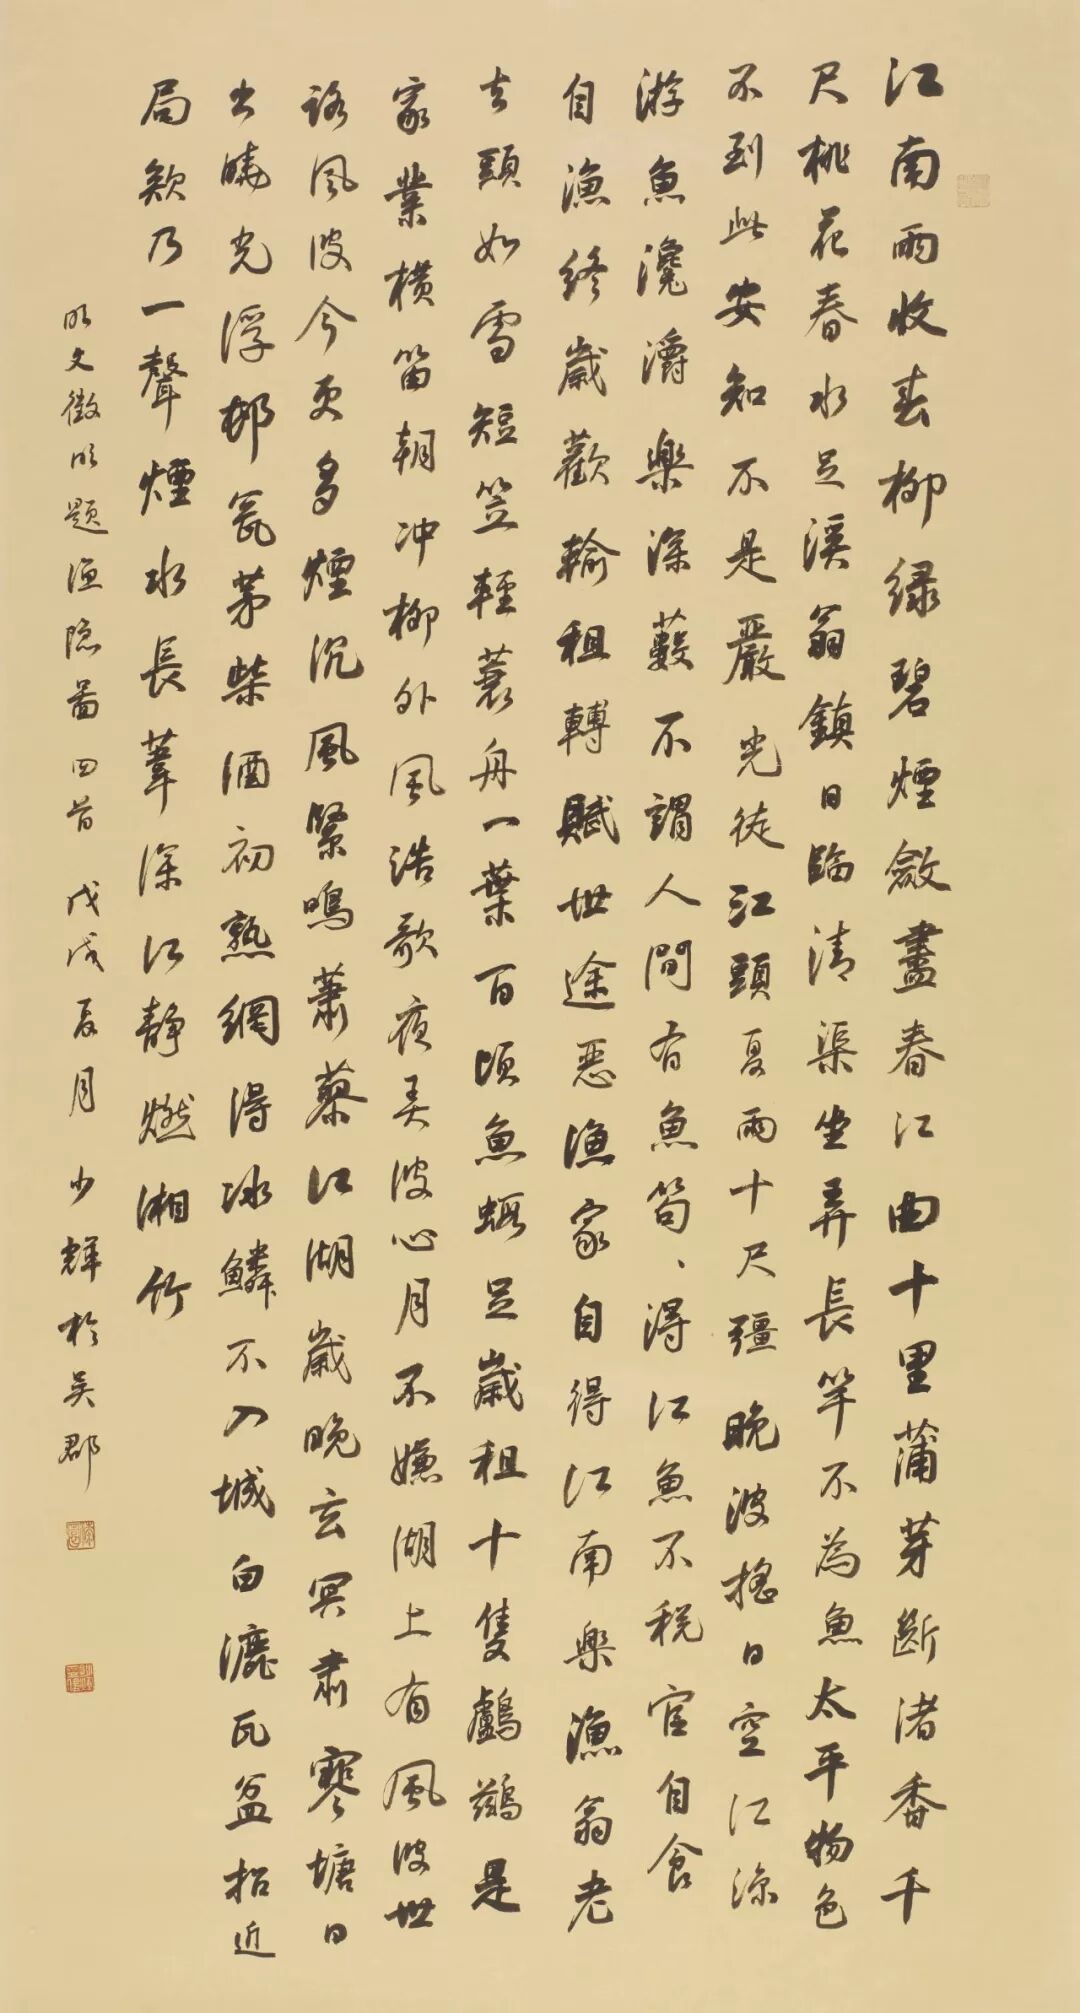 江南雨收春柳綠碧煙斂盡春江曲十里蒲芽斷渚香千
尺桃花春水足溪翁鎮日臨清渠坐弄長竿不為魚太平物色
不到此安知不是嚴光徒江頭夏雨十尺彊晚波搖日空江涼
游魚瀺灂樂深藪不謂人間有魚笱、得江魚不稅官自食
自漁終歲歡輸租轉賦世途惡漁家自得江南樂漁翁老
去頭如雪短笠輕蓑舟一葉百頃魚蝦足歲租十隻鸕鶿是
家業橫笛朝冲柳外風浩歌夜弄波心月不嫌湖上有風波世
路風波今更多煙沉風緊鳴蕭蔡江湖歲晚玄冥肅寒塘日
出曉光浮邨瓮茅柴酒初熟網得冰鱗不入城白漉瓦盆招近
局欸乃一聲煙水長葦深江靜燃湘竹
明文徵明題漁隱圖四首 戊戌辰月 少輝於吳郡